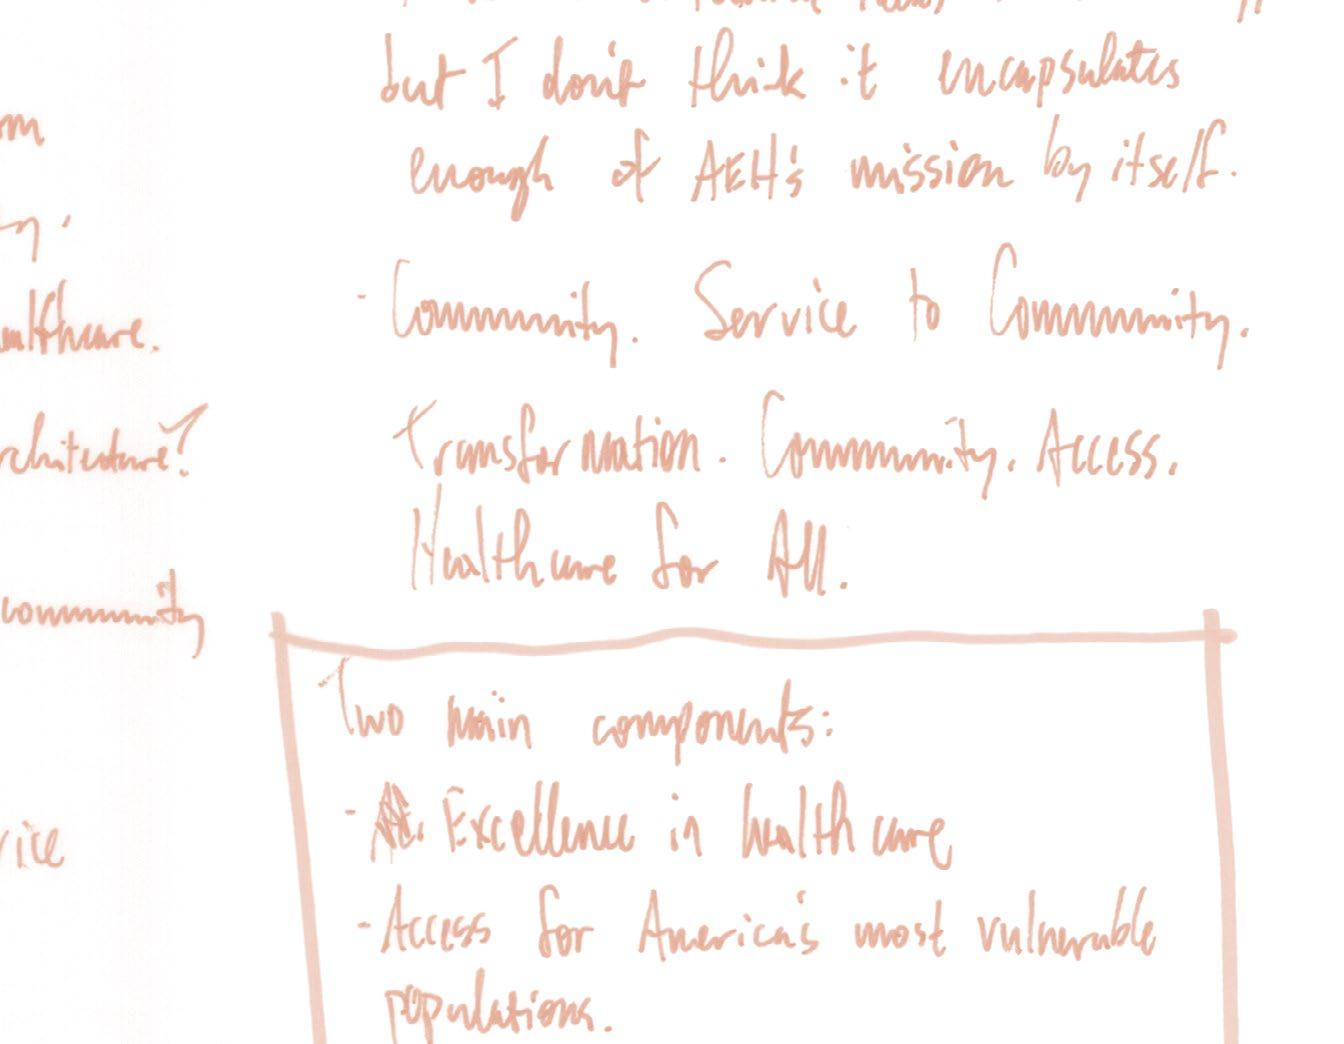 but I don't think it encapsulates
enough of AEH's mission by itself.
- Community. Service to Community.
Transformation. Community. Access.
Healthcare for All.
Two main components:
- Excellence in healthcare
- Access for America's most vulnerable
populations.
community